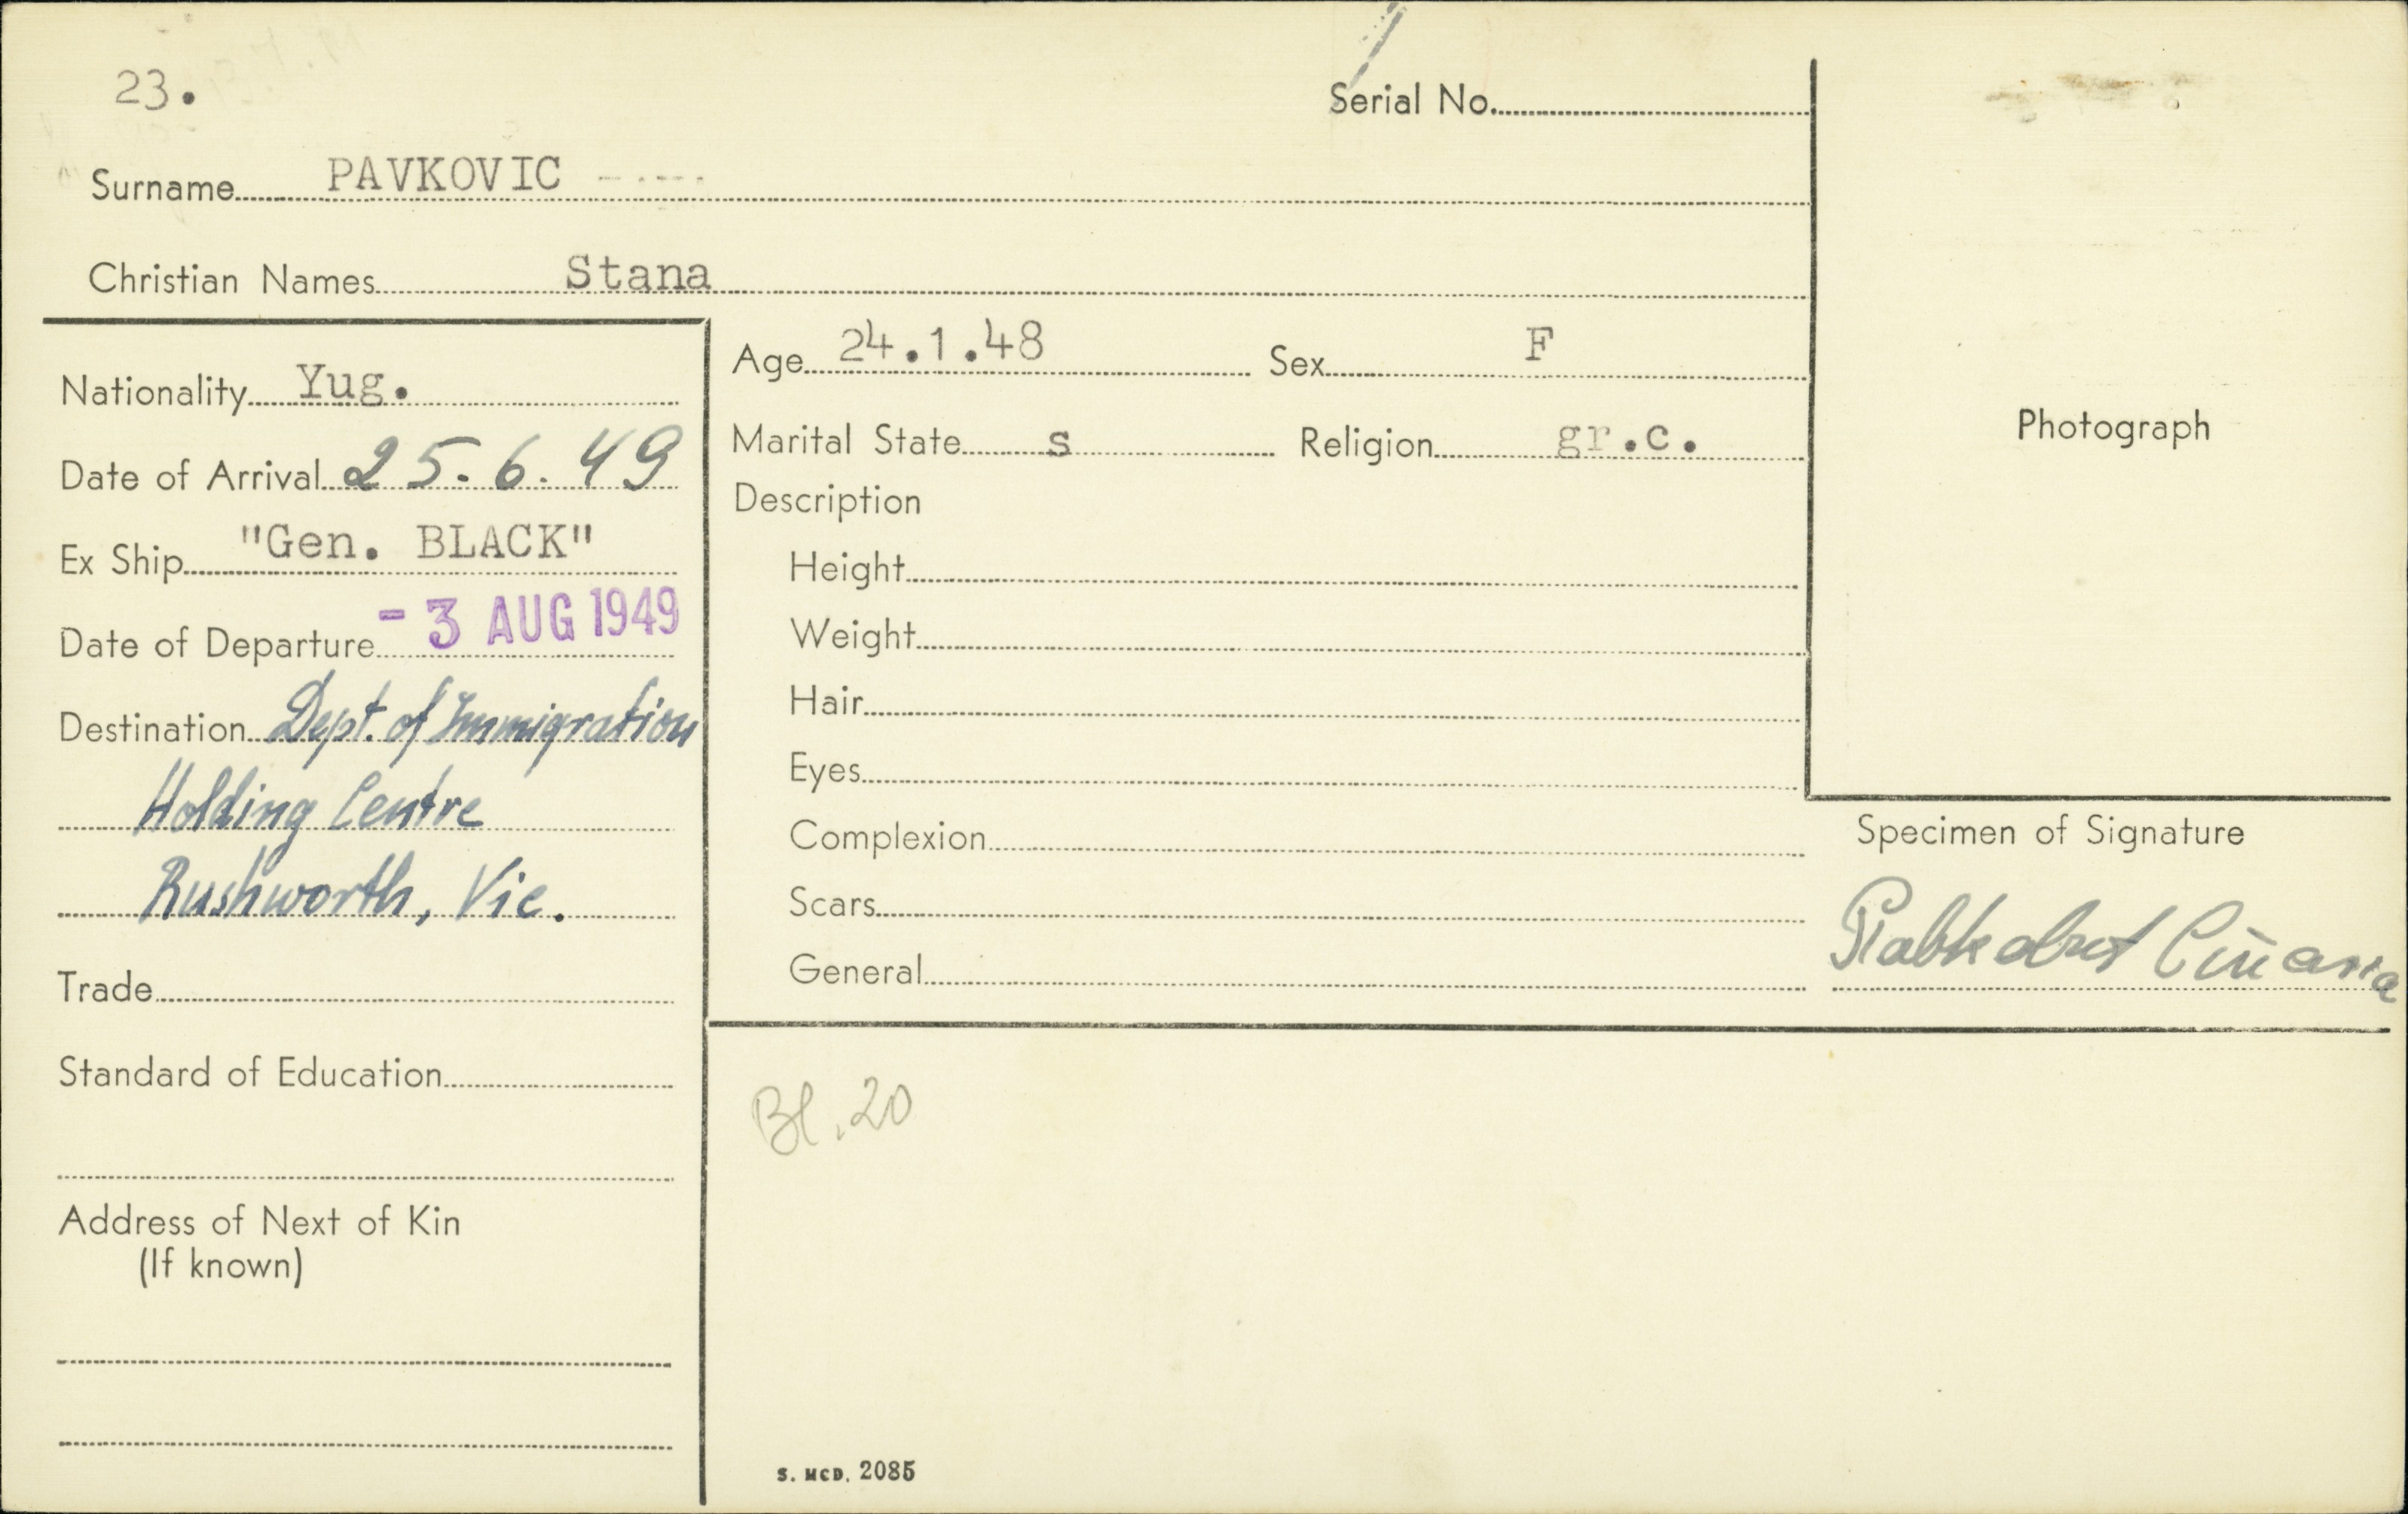 23.
Serial No.
Surname PAVKOVIC
Christian Names Stana
Nationality Yug.
Date of Arrival 25.6.49
Ex Ship "Gen. BLACK"
Date of Departure - 3 AUG 1949
Destination Dept. of Immigration
Holding Centre
Rushworth, Vic.
Trade
Standard of Education
Address of Next of Kin
(If known)
Age 24.1.48 Sex F
Marital State s Religion gr.c.
Description
Height
Weight
Hair
Eyes
Complexion
Scars
General
Photograph
Specimen of Signature
Bl.20
S. McD. 2085